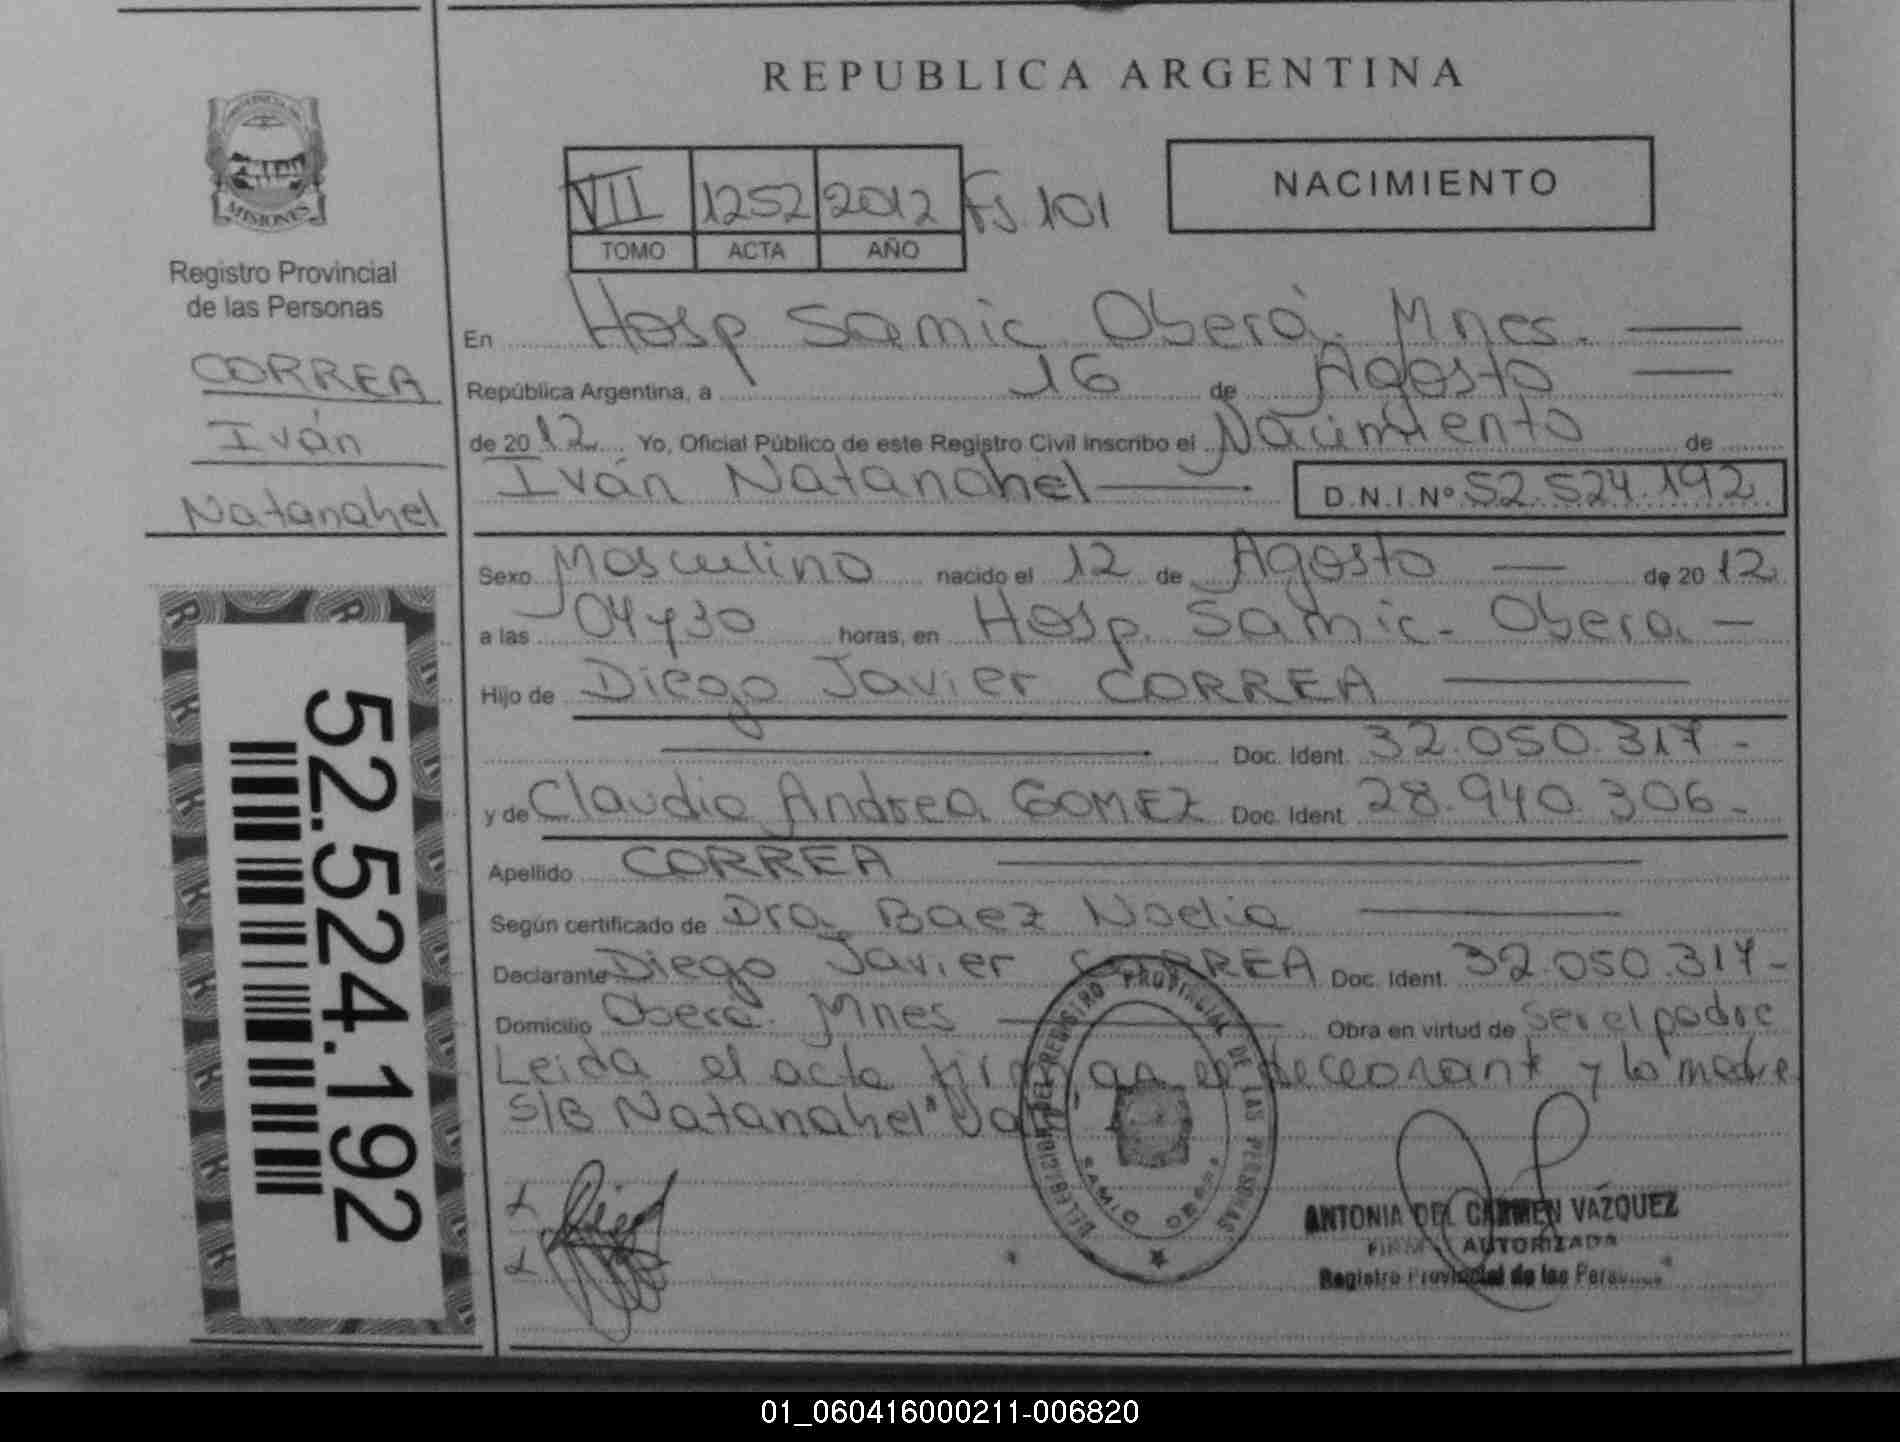 REPUBLICA ARGENTINA
PROVINCIA DE
MISIONES
Registro Provincial
de las Personas
CORREA
Iván
Natanahel
52.524.192
VII 1252 2012 Fs. 101
TOMO ACTA AÑO
NACIMIENTO
En Hosp Samic Oberá. Mnes.
República Argentina, a 16 de Agosto
de 2012 Yo, Oficial Público de este Registro Civil inscribo el Nacimiento de
Iván Natanahel D.N.I.Nº 52.524.192
Sexo Masculino nacido el 12 de Agosto de 2012
a las 04 y 30 horas, en Hosp. Samic - Obera. -
Hijo de Diego Javier CORREA
Doc. Ident. 32.050.317 -
y de Claudia Andrea GOMEZ Doc. Ident. 28.940.306 -
Apellido CORREA
Según certificado de Dra. Baez Noelia
Declarante Diego Javier CORREA Doc. Ident. 32.050.317 -
Domicilio Oberá. Mnes Obra en virtud de ser el padre
Leida el acta firman el y la madre
S/B Natanahel"
DELEGACION DEL REGISTRO PROVINCIAL DE LAS PERSONAS
SAMIC OBERA
ANTONIA DEL CARMEN VAZQUEZ
FIRMA AUTORIZADA
Registro Provincial de las Personas
01_060416000211-006820